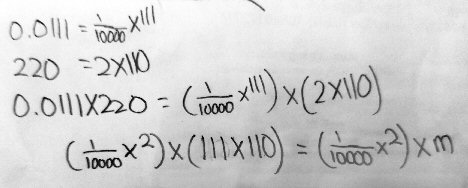 0.0111 = 1/10000 × 111
220 = 2×110
0.0111×220 = (1/10000 × 111) × (2×110)
(1/10000 × 2) × (111×110) = (1/10000 × 2) × m